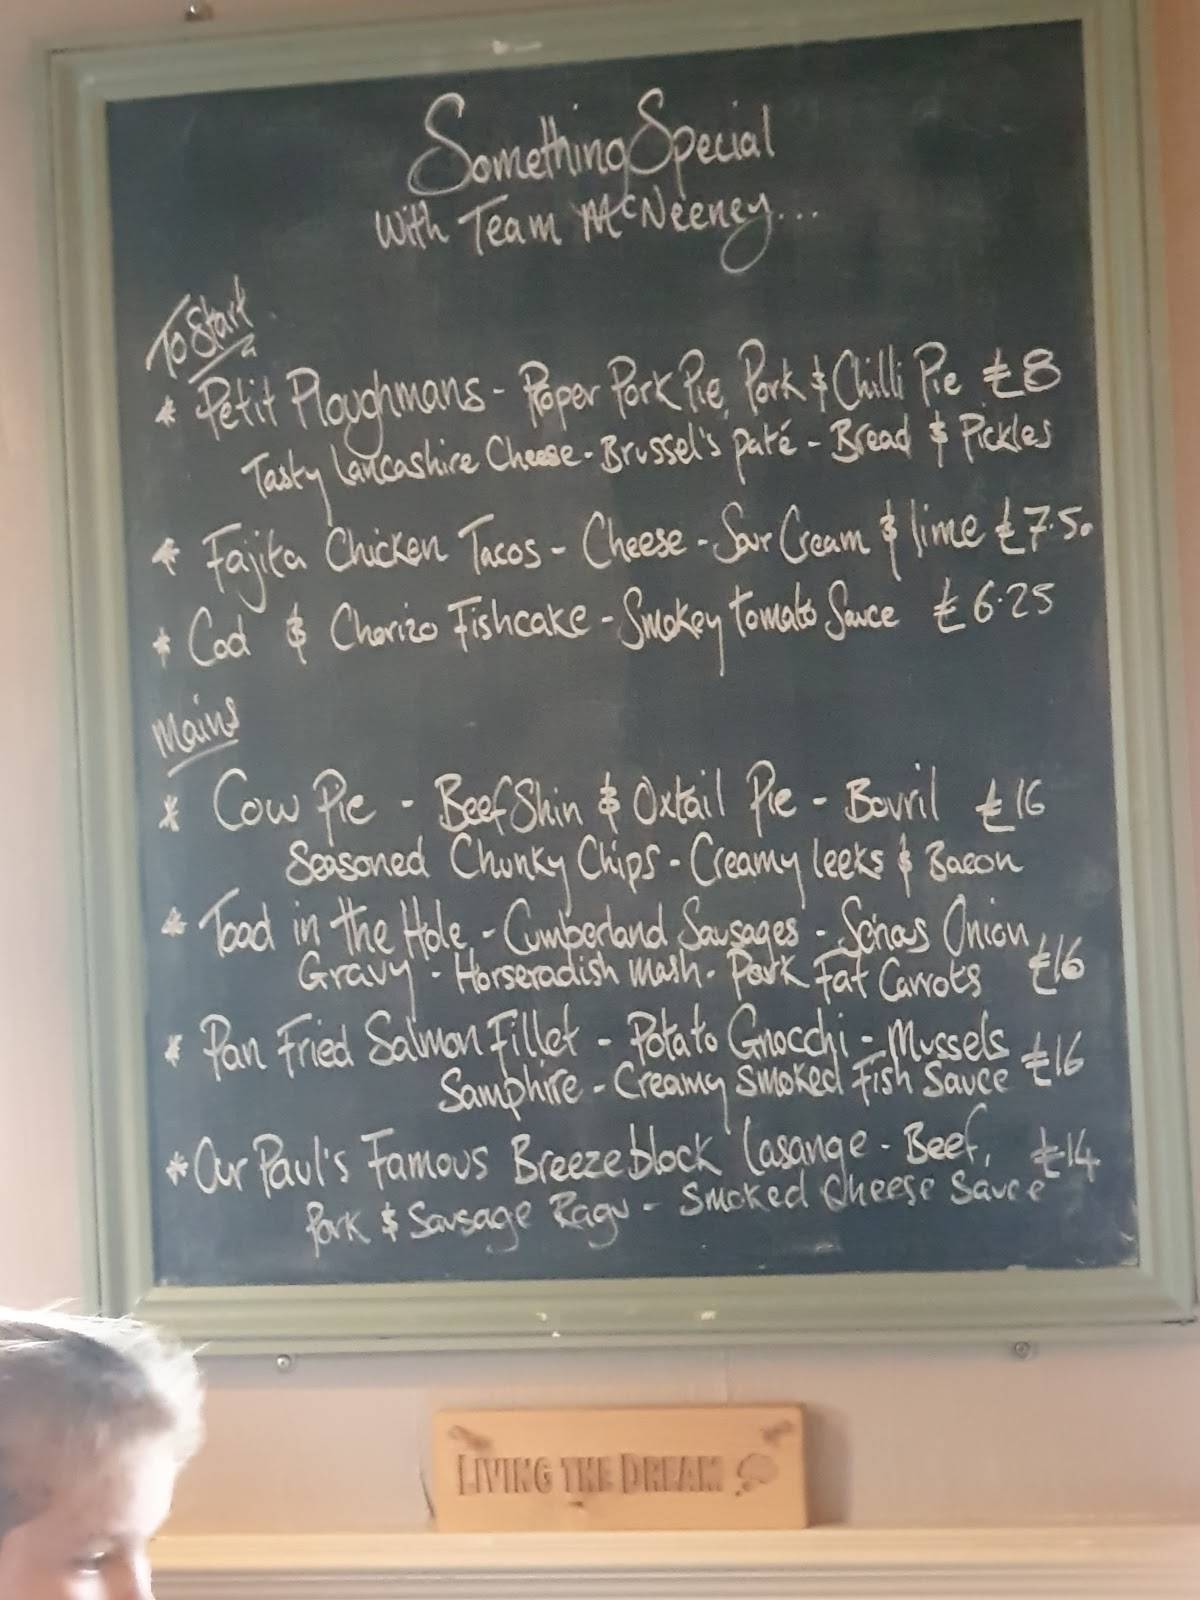 Something Special
With Team McNeeney...
To Start
* Petit Ploughmans - Proper Pork Pie, Pork & Chilli Pie £8
Tasty Lancashire Cheese - Brussel's paté - Bread & Pickles
* Fajita Chicken Tacos - Cheese - Sour Cream & lime £7.50
* Cod & Chorizo Fishcake - Smokey tomato Sauce £6.25
Mains
* Cow Pie - Beef Shin & Oxtail Pie - Bovril £16
Seasoned Chunky Chips - Creamy leeks & Bacon
* Toad in the Hole - Cumberland Sausages - Onion
Gravy - Horseradish mash - Pork Fat Carrots £16
* Pan Fried Salmon Fillet - Potato Gnocchi - Mussels
Samphire - Creamy Smoked Fish Sauce £16
* Our Paul's Famous Breezeblock Lasange - Beef, £14
Pork & Sausage Ragu - Smoked Cheese Sauce
LIVING THE DREAM